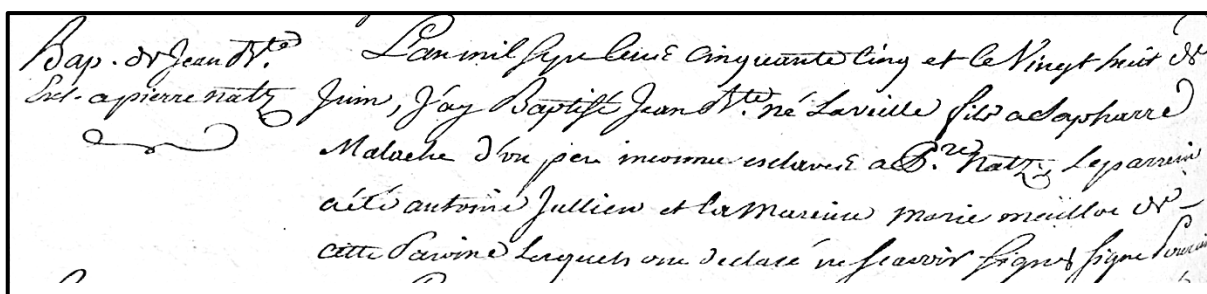 Bap. de Jean Bte.
Escl. a pierre natz
L'an mil sept cens cinquante cinq et le Vingt huit de
Juin, J'ay Baptisé Jean Bte. né La veille fils a
Malache d'un pere inconnu esclaves a P.re Natz, Le parrein
a été antoine Jullien et la Mareine marie de
cette Paroine Lesquels ont declaré ne scavoir signer signé